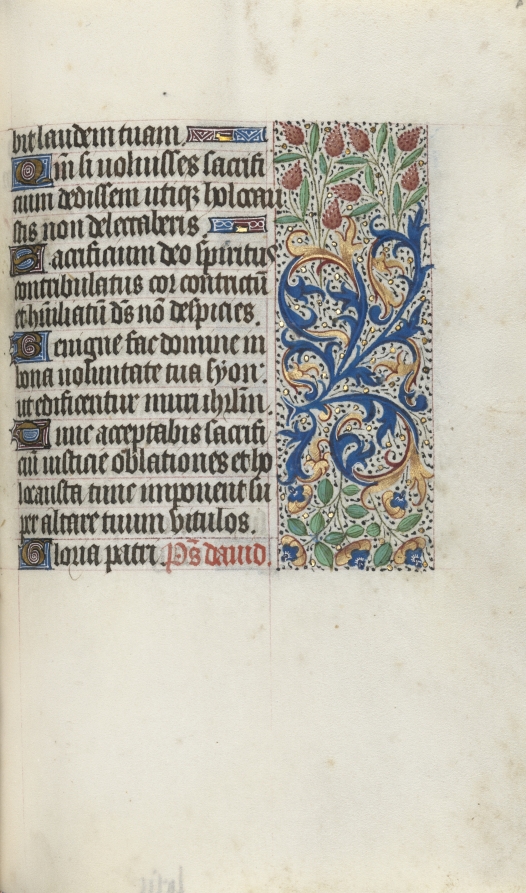 bit laudem tuam
Qm̄ si uoluisses sacrifi
cium dedissem utiqꝫ holocau
stis non delectaberis
Sacrificium deo sp̄iritus
contribulatus cor contrictū
et hūiliatū ds̄ nō despicies.
Benigne fac domine in
bona uoluntate tua syon
ut edificentur muri ihrl̄m.
Tunc acceptabis sacrifi
ciū iusticie oblationes et ho
locausta tunc imponent su
per altare tuum vitulos.
Gloria patri. Ps̄ dauid.